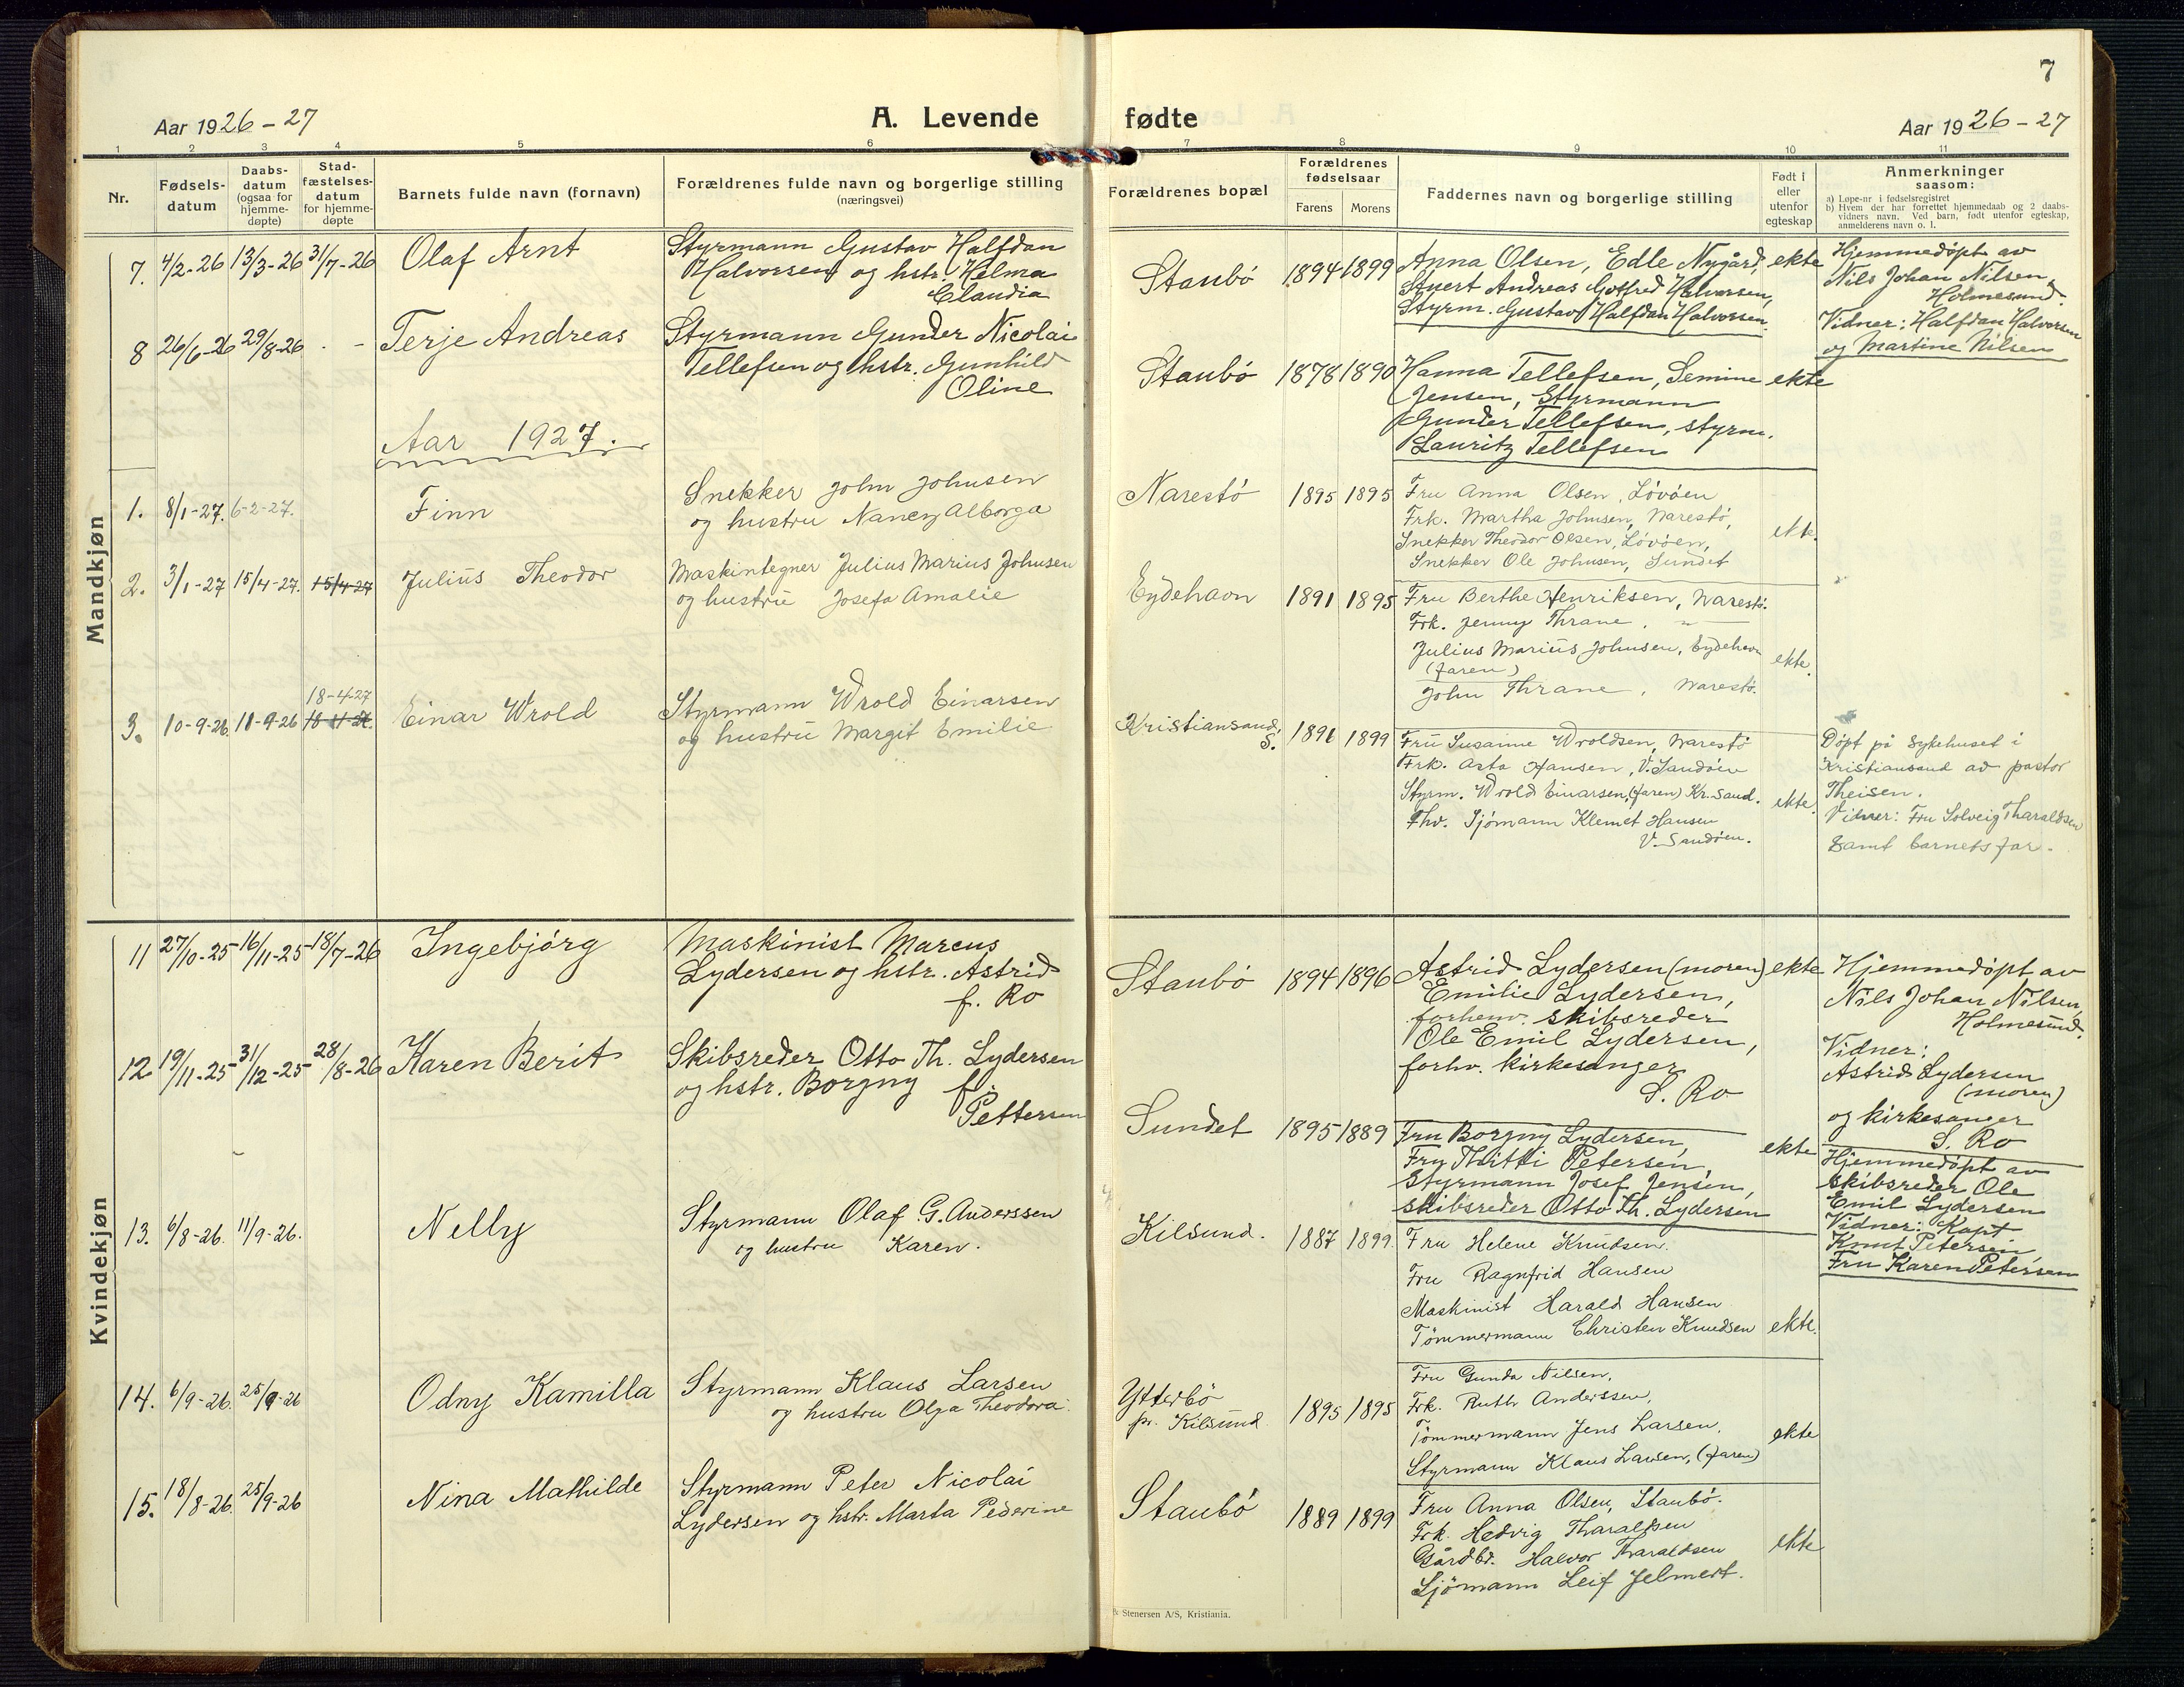 7
Aar 1926-27
A. Levende fødte
Aar 1926-27
1 2 3 4 5 6 7 8 9 10 11
Nr.
Fødsels-
datum
Daabs-
datum
(ogsaa for
hjemme-
døpte)
Stad-
fæstelses-
datum
for hjemme-
døpte
Barnets fulde navn (fornavn)
Forældrenes fulde navn og borgerlige stilling
(næringsvei)
Forældrenes bopæl
Forældrenes
fødselsaar
Farens Morens
Faddernes navn og borgerlige stilling
Født i
eller
utenfor
egteskap
Anmerkninger
saasom:
a) Løpe-nr. i fødselsregistret
b) Hvem der har forrettet hjemmedaab og 2 daabs-
vidners navn. Ved barn, født utenfor egteskap,
anmelderens navn o. l.
Mandkjøn
7. 4/2-26 13/3-26 31/7-26 Olaf Arnt
Styrmann Gustav Halfdan
Halvorsen og hstr. Helma
Claudia
Staubö 1894 1899
Anna Olsen, Edle Nygård,
Stuert Andreas Gotfred Halvorsen,
Styrm. Gustav Halfdan Halvorsen.
ekte
Hjemmedöpt av
Nils Johan Nilsen,
Holmesund.
Vidner: Halfdan Halvorsen
og Martine Nilsen
8 26/6-26 29/8-26 - Terje Andreas
Styrmann Gunder Nicolai
Tellefsen og hstr. Gunhild
Oline
Staubö 1878 1890
Hanna Tellefsen, Semine
Jensen, Styrmann
Gunder Tellefsen, styrm.
Lauritz Tellefsen
ekte
Aar 1927.
1. 8/1-27. 6-2-27. Finn
Snekker John Johnsen
og hustru Nancy Alborga
Narestö 1895 1895
Fru Anna Olsen, Lövöen
Frk. Martha Johnsen, Narestö,
Snekker Theodor Olsen, Lövöen,
Snekker Ole Johnsen, Sundet
ekte.
2. 3/1-27 15/4-27. 15/4-27 Julius Theodor
Maskintegner Julius Marius Johnsen
og hustru Josefa Amalie
Eydehavn 1891 1895
Fru Berthe Henriksen, Narestö.
Frk. Jenny Thrane, -"-
Julius Marius Johnsen, Eydehavn
(faren)
John Thrane, Narestö.
ekte.
3. 10-9-26. 11-9-26 18-4-27 Einar Wrold
Styrmann Wrold Einarsen
og hustru Margit Emilie
Kristiansand
S. 1896 1899
Fru Susanne Wroldsen, Narestö
Frk. Asta Hansen, V. Sandöen
Styrm. Wrold Einarsen, (faren) Kr. sand.
Fhv. Sjömann Klemet Hansen
V. Sandöen.
ekte
Döpt på sykehuset i
Kristiansand av pastor
Theisen.
Vidner: Fru Solveig Tharaldsen
samt barnets far.
Kvindekjøn
11 27/10-25 16/11-25 18/7-26 Ingebjörg
Maskinist Marcus
Lydersen og hstr. Astrid
f. Ro
Staubö 1894 1896
Astrid Lydersen (moren)
Emilie Lydersen,
forhenv. skibsreder
Ole Emil Lydersen,
forhv. kirkesanger
S. Ro
ekte
Hjemmedöpt av
Nils Johan Nilsen,
Holmesund.
Vidner:
Astrid Lydersen
(moren)
og kirkesanger
S. Ro
12. 19/11-25 31/12-25 28/8-26 Karen Berit
Skibsreder Otto Th. Lydersen
og hstr. Borgny f.
Pettersen
Sundet 1895 1889
Fru Borgny Lydersen,
Petersen,
Styrmann Josef Jensen,
skibsreder Otto Th. Lydersen
ekte
Hjemmedöpt av
skibsreder Ole
Emil Lydersen
Vidner: Kapt.
Knut Petersen,
Fru Karen Petersen
13. 6/8-26. 11/9-26. Nelly
Styrmann Olaf G. Anderssen
og hustru Karen.
Kilsund. 1887 1899
Fru Helene Knudsen.
Fru Ragnfrid Hansen
Maskinist Harald Hansen
Tömmermann Christen Knudsen
ekte.
14. 6/9-26. 25/9-26 Odny Kamilla
Styrmann Klaus Larsen
og hustru Olga Theodora.
Ytterbö
pr. Kilsund. 1895 1895
Fru Gunda Nilsen,
Frk. Ruth Anderssen,
Tömmermann Jens Larsen,
Styrmann Klaus Larsen, (faren)
ekte
15. 18/8-26. 25/9-26 Nina Mathilde
Styrmann Peter Nicolai
Lydersen og hstr. Marta Pederine
Staubö 1889 1899
Fru Anna Olsen, Staubö.
Frk. Hedvig Tharaldsen
Gårdbr. Halvor Tharaldsen
Sjömann Leif Jelmert.
ekte
& Stenersen A/S, Kristiania.